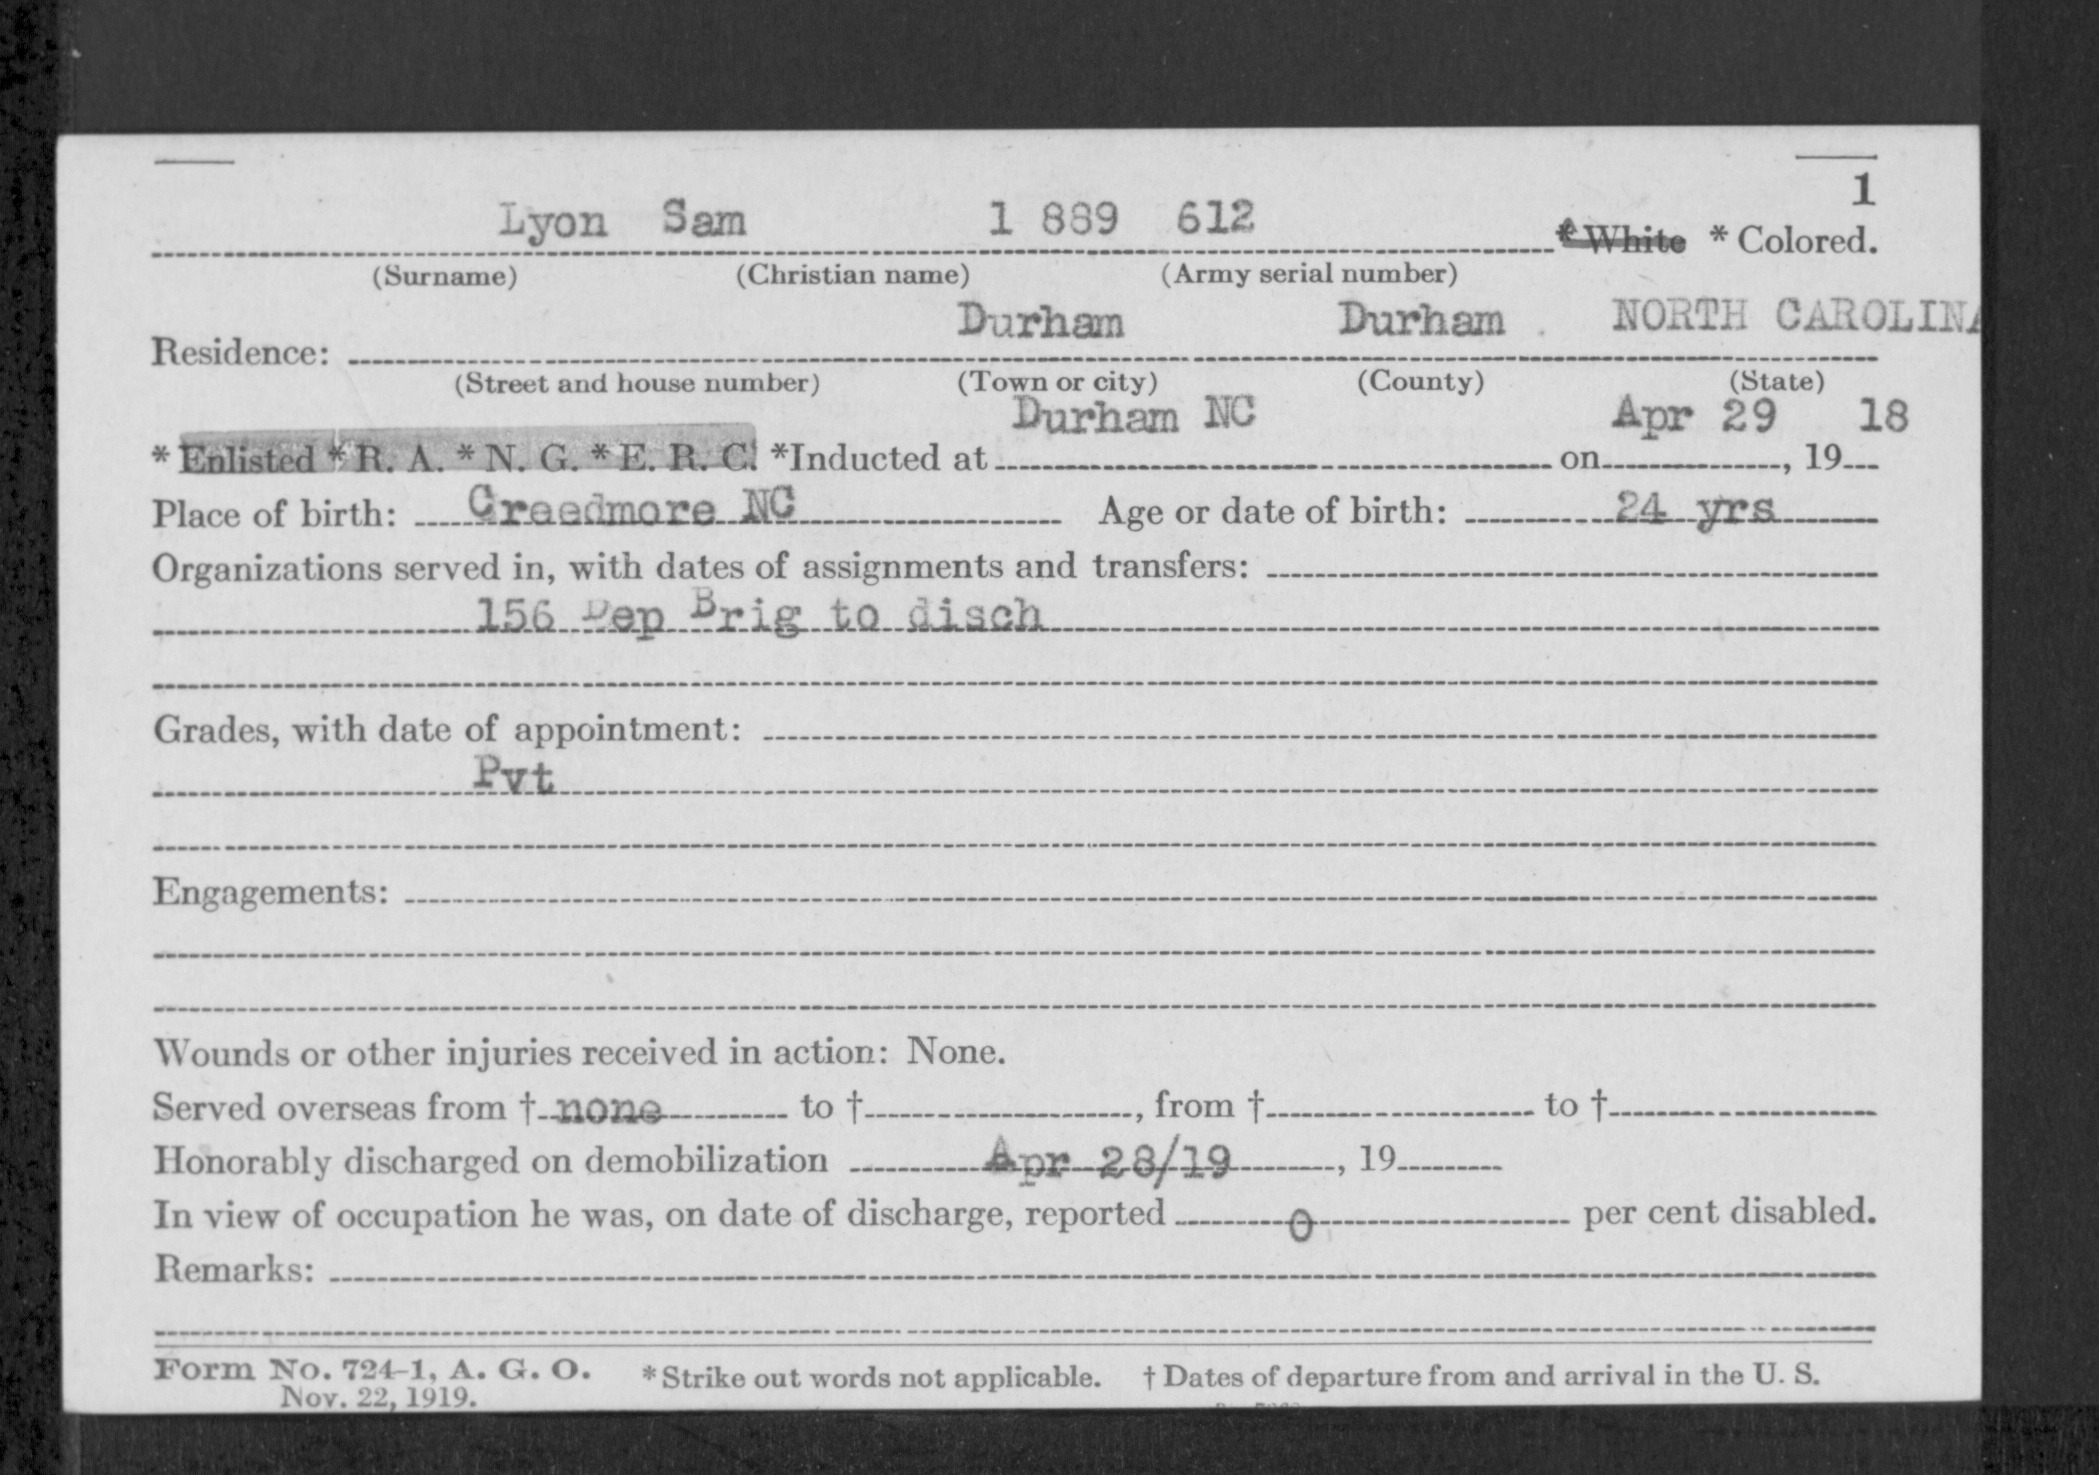 1
Lyon Sam 1 889 612 * White * Colored.
(Surname) (Christian name) (Army serial number)
Durham Durham NORTH CAROLINA
Residence:
(Street and house number) (Town or city) (County) (State)
Durham NC Apr 29 18
* Enlisted * R. A. * N. G. * E. R. C. *Inducted at on , 19
Place of birth: Creedmore NC Age or date of birth: 24 yrs
Organizations served in, with dates of assignments and transfers:
156 Dep Brig to disch
Grades, with date of appointment:
Pvt
Engagements:
Wounds or other injuries received in action: None.
Served overseas from † none to † , from † to †
Honorably discharged on demobilization Apr 28/19 , 19
In view of occupation he was, on date of discharge, reported 0 per cent disabled.
Remarks:
Form No. 724-1, A. G. O. * Strike out words not applicable. † Dates of departure from and arrival in the U. S.
Nov. 22, 1919.